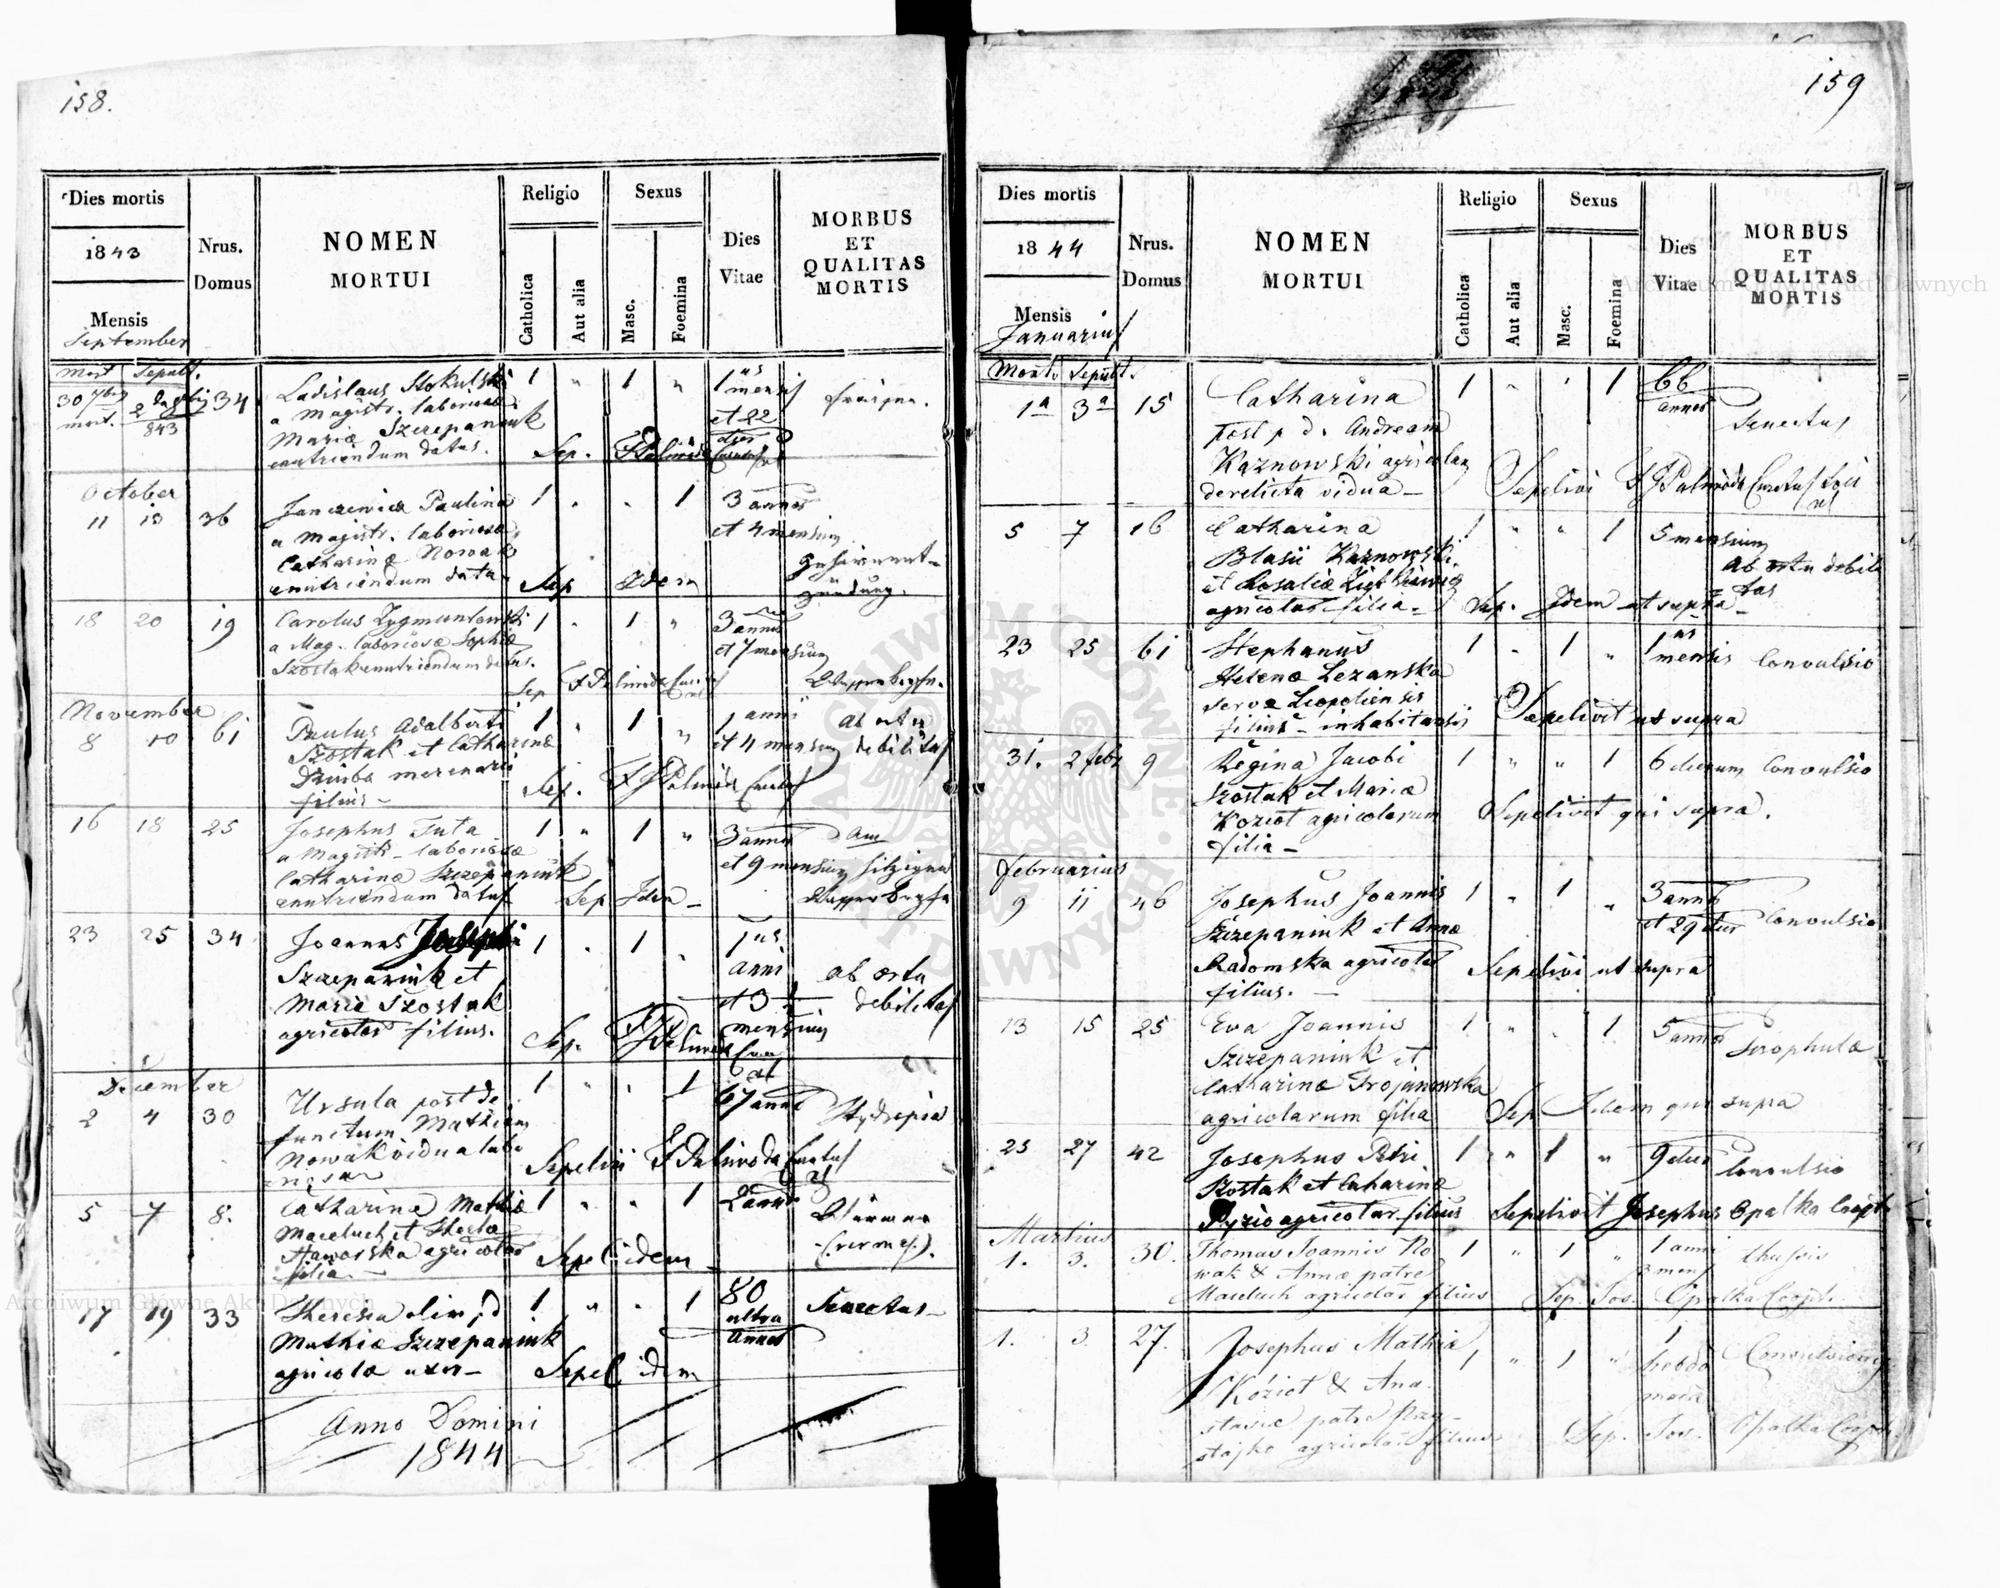 158.
Dies mortis
1843
Mensis
September
Nrus.
Domus
NOMEN
MORTUI
Religio
Catholica
Aut alia
Sexus
Masc.
Foemina
Dies
Vitae
MORBUS
ET
QUALITAS
MORTIS
Mort Sepult.
30 7bris 2 34 Ladislaus Stokulski 1 " 1 " 1us
mort. 843 a magistr. laboriosa mensis
Mariae Szczepaniuk et 22
enutriendum datus. Sep. F Palmoda dies
October
11 13 36 Janczewicz Paulina 1 " " 1 3 annos
a magistr. laboriosa et 4 mensium
Catharinae Nowak Gehirnent-
enutriendum data Sep Idem zündung.
18 20 19 Carolus Zygmuntowski 1 " 1 " 3 annos
a Mag. laboriosae Sophiae et 7 mensium
Szostak enutriendum datus.
Sep F Palmoda
November
8 10 61 Paulus Adalberti 1 " 1 " 1 anni ab ortu
Szostak et Catharinae et 4 mensium debilitas
Dziuba mercenarii
filius - Sep. F J Palmoda Curatus
16 18 25 Josephus Tuta 1 " 1 " 3 annos Am
a Magistr - laboriosae et 9 mensium
Catharinae Szczepaniuk
enutriendum datus Sep Idem -
23 25 34 Joannes Josephi 1 " 1 " 1us
Szczepaniuk et anni ab ortu
Maria Szostak et 3 debilitas
agricolar filius. mensium
Sep. F J Palmoda
December
2 4 30 Ursula post de 1 " " 1 67 annos Hydropisia
functum Mathiam
Nowak vidua
Sepelivi F Palmoda Curatus
5 7 8. Catharina Mathiae 1 " " 1 2 annos
Maceluch et
Jaworska agricolar (vermes).
filia - Sepel idem
17 19 33 Theresia olim 1 " " 1 80 Senectus -
Mathiae Szczepaniuk ultra
agricolae uxor - Sepel idem annos
Anno Domini
1844
159
Dies mortis
1844
Mensis
Januarius
Nrus.
Domus
NOMEN
MORTUI
Religio
Catholica
Aut alia
Sexus
Masc.
Foemina
Dies
Vitae
MORBUS
ET
QUALITAS
MORTIS
Mort. Sepult.
1a 3a 15 Catharina 1 " " 1 66
post p. d. Andream annos Senectus
Kaznowski agricolam
derelicta vidua - Sepelivi F J Palmoda Curatus loci
5 7 16 Catharina 1 " " 1 5 mensium
Blasii Kaznowski ab ortu debili
et Rosaliae tas
agricolar filia - Sep. Idem ut supra -
23 25 61 Stephanus 1 " 1 " 1us
Helenae Lezanska mensis Convulsio
serva Leopoliensis
filius - inhabitansis Sepelivit ut supra
31. 2 febr 9 Regina Jacobi 1 " " 1 6 dierum Convulsio
Szostak et Mariae
Kozioł agricolarum Sepelivit qui supra.
filia -
Februarius
9 11 46 Josephus Joannis 1 " 1 " 3 annos
Szczepaniuk et Annae et 29 dies Convulsio
Radomska agricolar Sepelivi ut supra
filius. -
13 15 25 Eva Joannis 1 " " 1 5 annos
Szczepaniuk et Scrophulae
Catharinae Trojanowska
agricolarum filia Sep Idem qui supra
25 27 42 Josephus Petri 1 " 1 " 9 dies
Szostak et Catharinae Convulsio
Pyzio agricolar filius Sepelivit Josephus Opalka Coopr
Martius
1. 3. 30. Thomas Joannis No 1 " 1 " 1 anni thussis
wak & Annae patre 3 mens
Maceluch agricolar filius Sep. Jos. Opalka Coopr.
1. 3. 27. Josephus Mathiae 1 " 1 " 1
Kozioł & Ana hebdo
stasiae patre Przy- madae
stajko agricolar filius Sep. Jos. Opalka Coopr.
Archiwum Główne Akt Dawnych
Archiwum Główne Akt Dawnych
ARCHIWUM GŁÓWNE AKT DAWNYCH